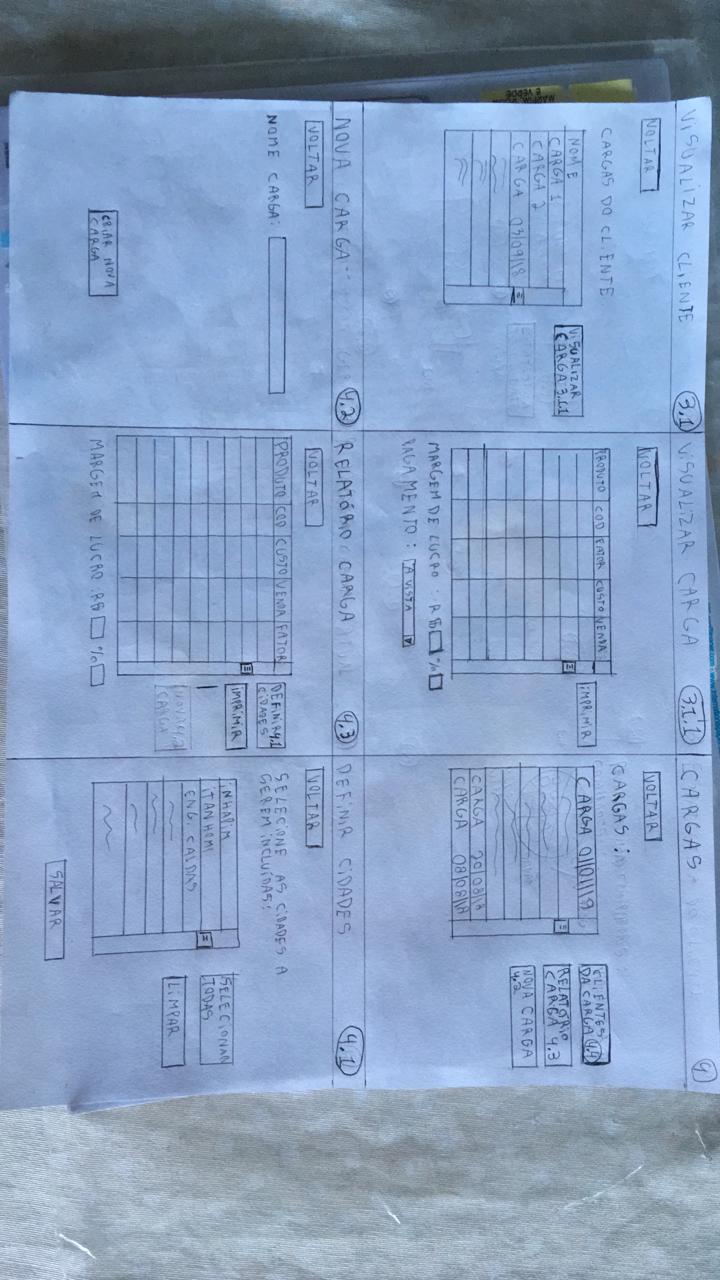 VISUALIZAR CLIENTE 3.1
VOLTAR
CARGAS DO CLIENTE
NOME
CARGA 1
CARGA 2
CARGA 03/09/18
VISUALIZAR
CARGA 3.1.1
VISUALIZAR CARGA 3.1.1
VOLTAR
PRODUTO COD FATOR CUSTO VENDA
IMPRIMIR
MARGEM DE LUCRO : R$ %
PAGAMENTO : A VISTA
CARGAS 4
VOLTAR
CARGAS :
CARGA 01/01/19
CARGA 20/08/18
CARGA 08/08/18
CLIENTES
DA CARGA 4.4
RELATÓRIO
CARGA 4.3
NOVA CARGA
4.2
NOVA CARGA 4.2
VOLTAR
NOME CARGA:
CRIAR NOVA
CARGA
RELATÓRIO CARGA 4.3
VOLTAR
PRODUTO COD CUSTO VENDA FATOR
DEFINIR 4.1
CIDADES
IMPRIMIR
NOVA 4.2
CARGA
MARGEM DE LUCRO : R$ %
DEFINIR CIDADES 4.1
VOLTAR
SELECIONE AS CIDADES A
SEREM INCLUÍDAS:
INHAPIM
ITANHOMI
ENG. CALDAS
SELECIONAR
TODAS
LIMPAR
SALVAR